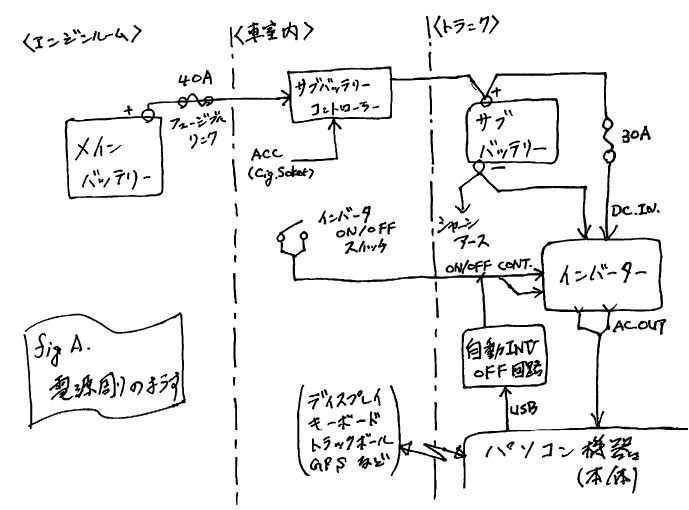 〈エンジンルーム〉
〈車室内〉
〈トランク〉
40A
フュージブル
リンク
+
メイン
バッテリー
サブバッテリー
コントローラー
ACC
(Cig.Soket)
+
サブ
バッテリー
−
30A
シャーシ
アース
DC.IN.
インバータ
ON/OFF
スイッチ
ON/OFF CONT.
インバーター
AC.OUT
自動INV
OFF回路
USB
fig A.
電源周りのようす
ディスプレイ
キーボード
トラックボール
GPS など
パソコン機器
(本体)